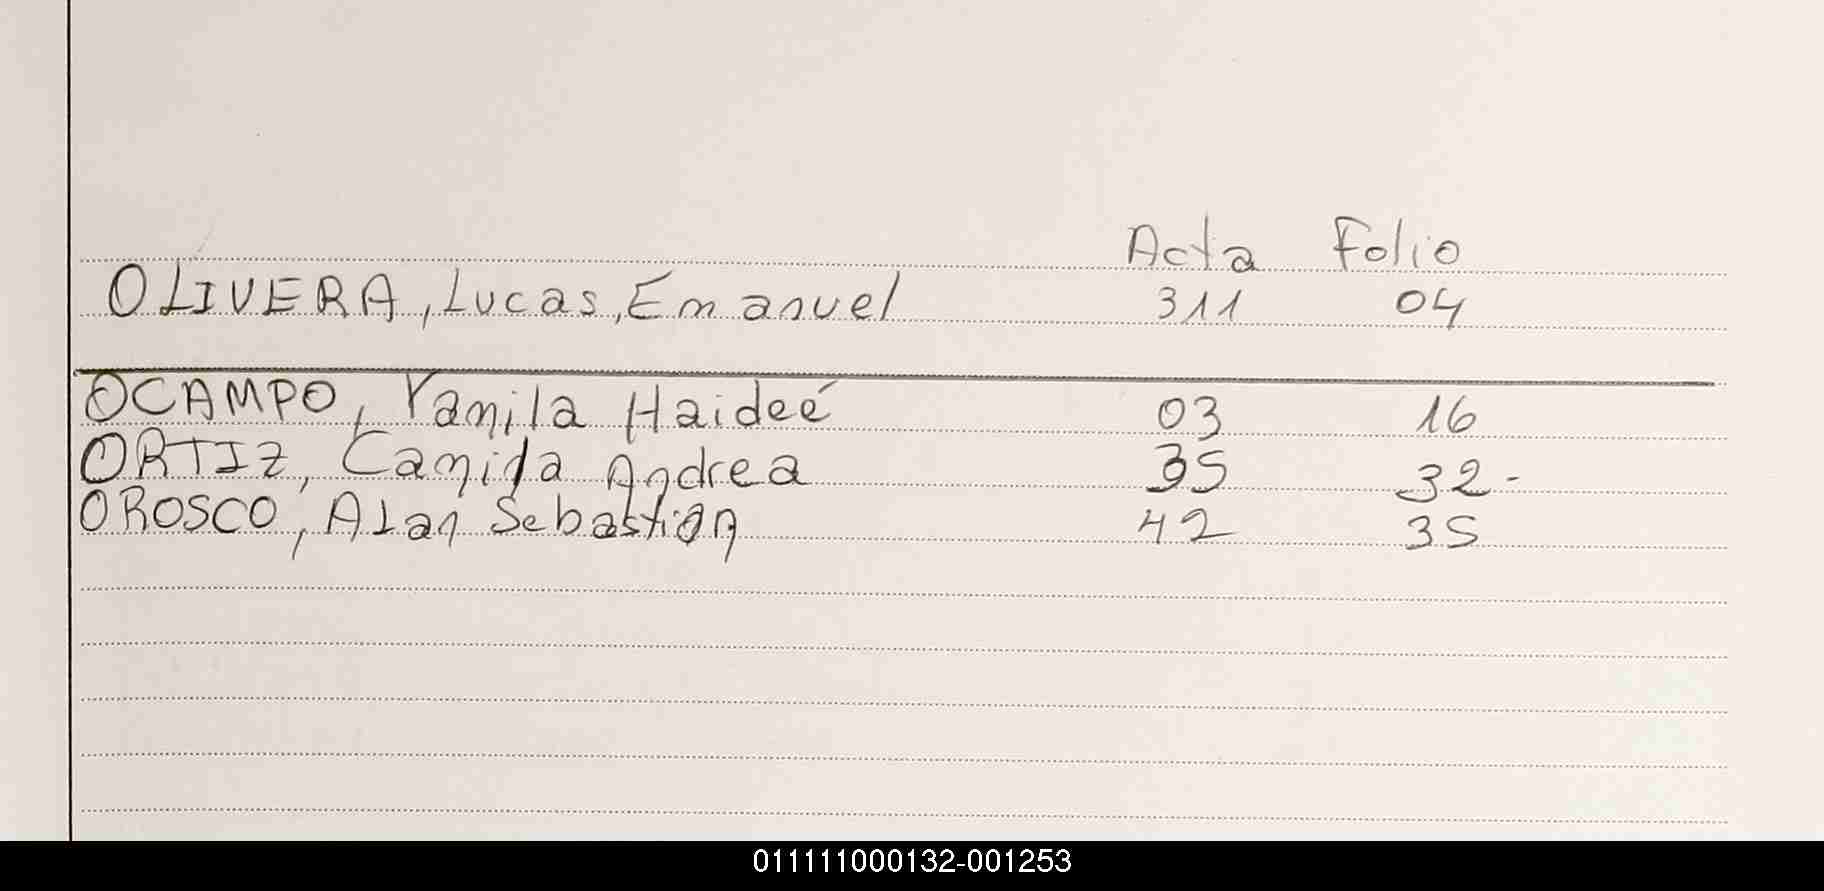 Acta Folio
OLIVERA, Lucas, Emanuel 311 04
OCAMPO, Yamila Haideé 03 16
ORTIZ, Camila Andrea 35 32-
OROSCO, Alan Sebastian 42 35
011111000132-001253